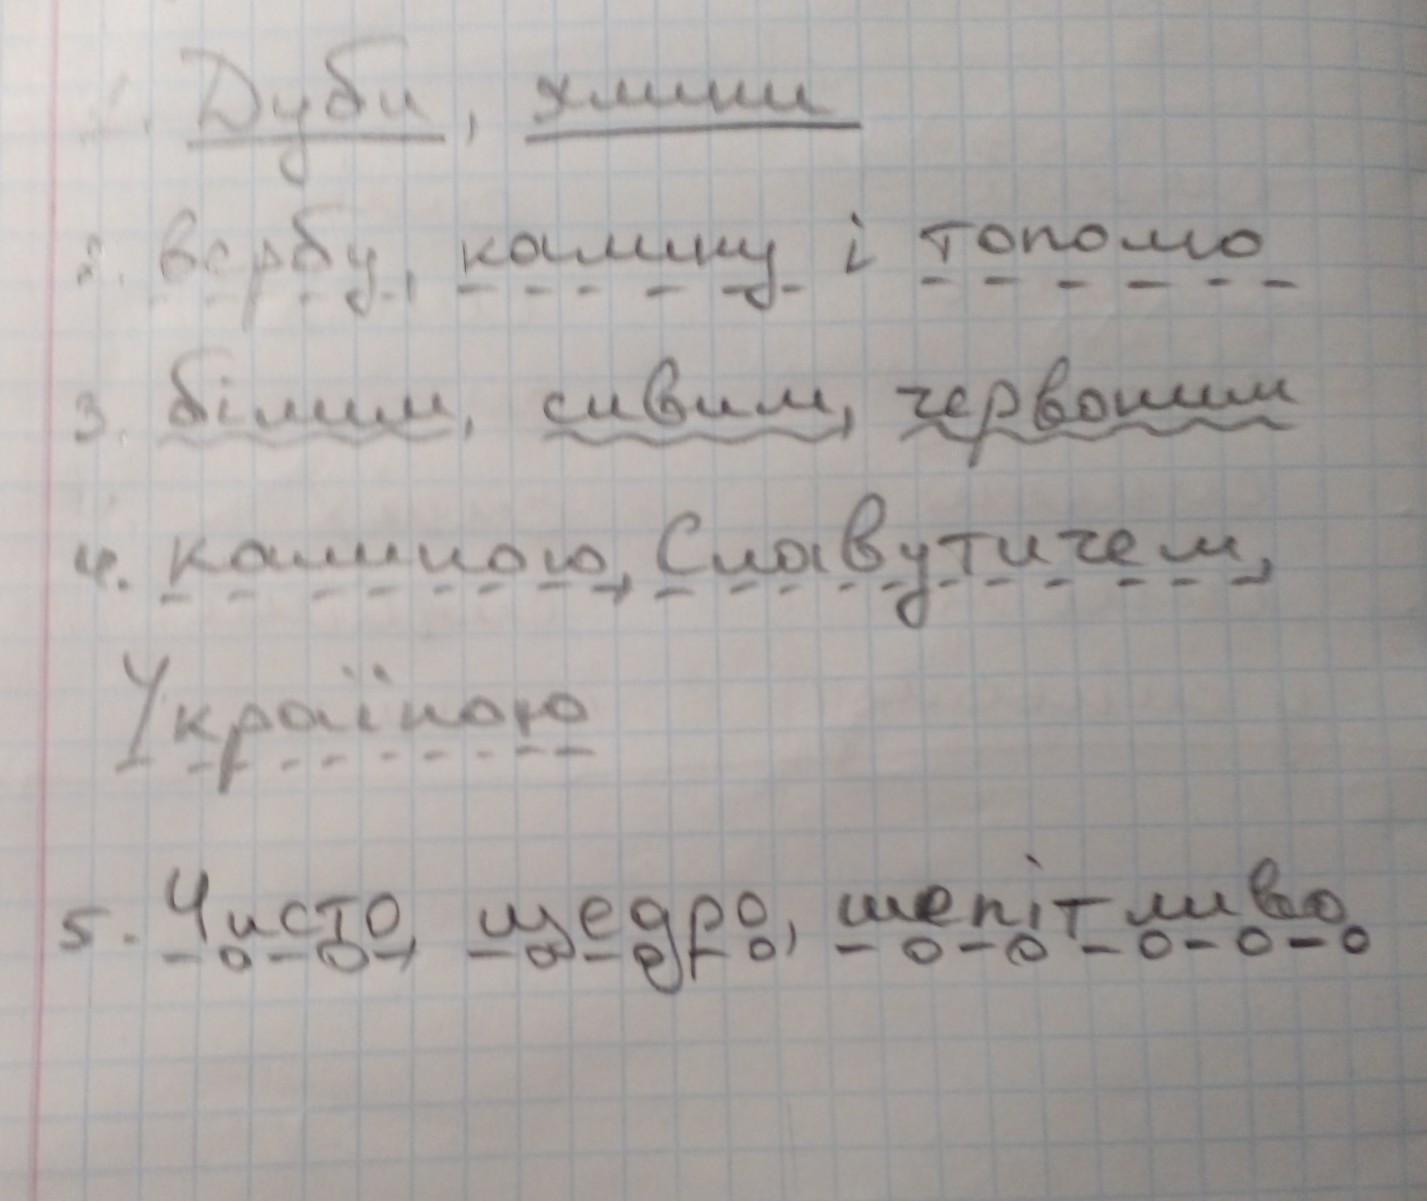 Дуби, хмиші
2. вербу, калину і тополю
3. білим, сивим, червоним
4. калиною, Славутичем,
Україною
5. Чисто, щедро, шепітливо